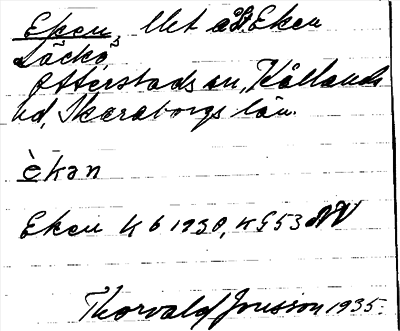 Eken, llet på Eken
Läckö,
Otterstads sn, Kållands
hd, Skaraborgs län.
èkən
Eken K b 1930, K G 53 NV
Thorvald Jonsson 1935.